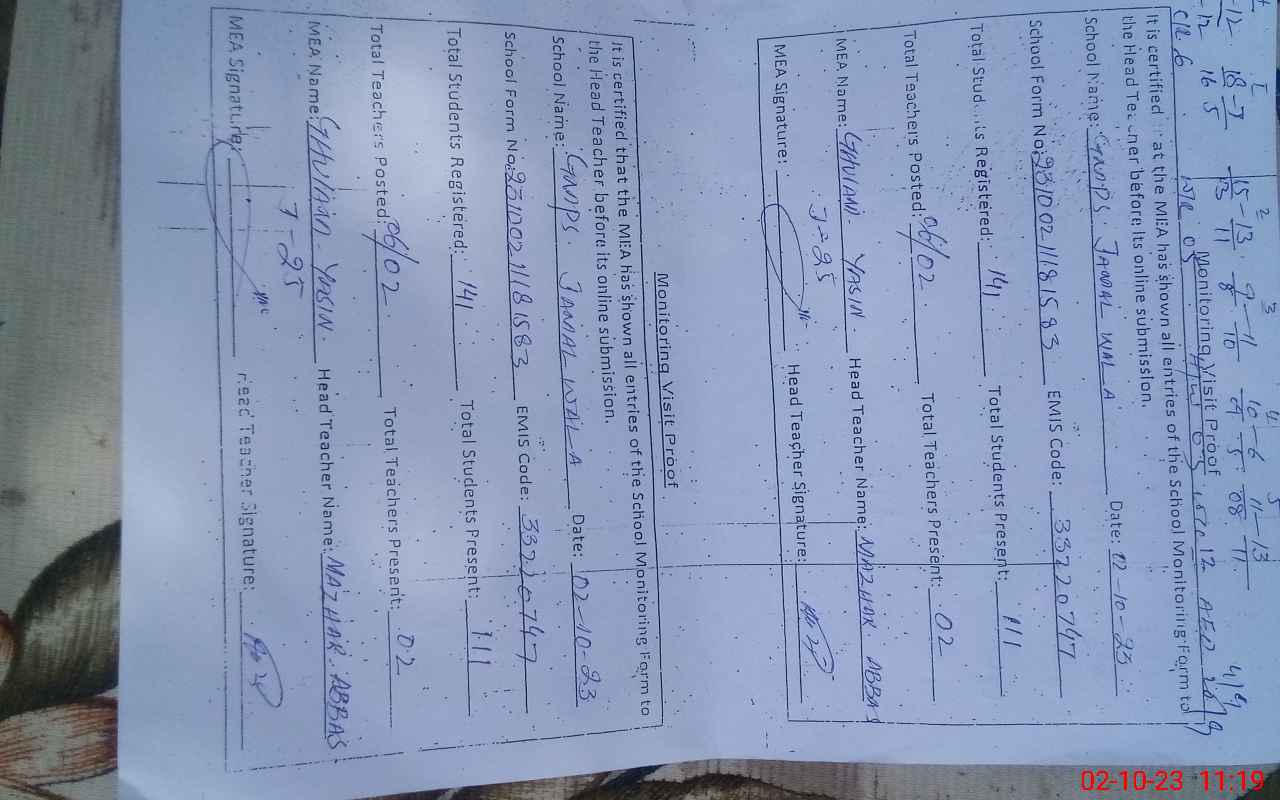 I 2 3 4 5
18-7 15-13 9-11 10-6 11-13
16 5 13 11 8 10 09 5 08 11
Monitoring Visit Proof
It is certified that the MEA has shown all entries of the School Monitoring Form to
the Head Teacher before its online submission.
School Name: GMPS. JAMAL WALA Date: 02-10-23
School Form No: 2310021118 1583 EMIS Code: 33220747
Total Students Registered: 141 Total Students Present: 111
Total Teachers Posted: 06/02 Total Teachers Present: 02
MEA Name: GHULAM. YASIN. Head Teacher Name: MAZHAR. ABBAS
J-25
MEA Signature: Head Teacher Signature:
Monitoring Visit Proof
It is certified that the MEA has shown all entries of the School Monitoring Form to
the Head Teacher before its online submission.
School Name: GMPS. JAMAL WALA Date: 02-10-23
School Form No: 2310021118 1583 EMIS Code: 33220747
Total Students Registered: 141 Total Students Present: 111
Total Teachers Posted: 06/02 Total Teachers Present: 02
MEA Name: GHULAM. YASIN. Head Teacher Name: MAZHAR. ABBAS
J-25
MEA Signature: Head Teacher Signature:
02-10-23 11:19